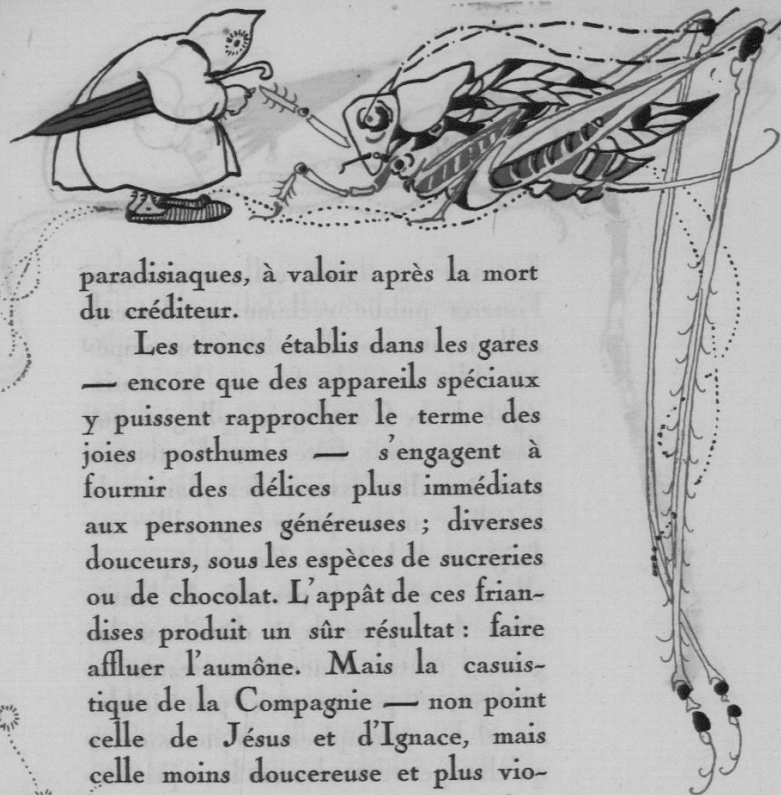 paradisiaques, à valoir après la mort
du créditeur.
Les troncs établis dans les gares
— encore que des appareils spéciaux
y puissent rapprocher le terme des
joies posthumes — s'engagent à
fournir des délices plus immédiats
aux personnes généreuses ; diverses
douceurs, sous les espèces de sucreries
ou de chocolat. L'appât de ces frian-
dises produit un sûr résultat : faire
affluer l'aumône. Mais la casuis-
tique de la Compagnie — non point
celle de Jésus et d'Ignace, mais
celle moins doucereuse et plus vio-